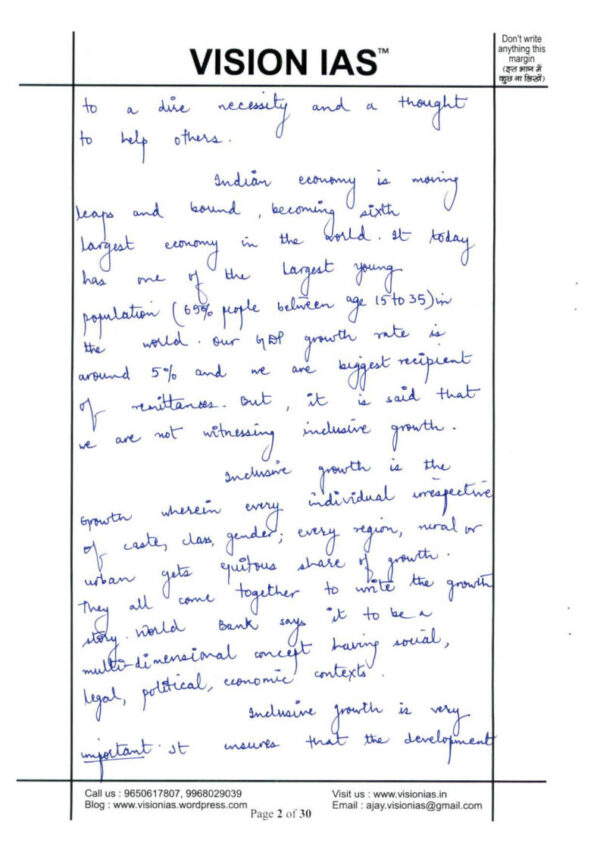 VISION IAS™
Don't write
anything this
margin
(इस भाग में
कुछ ना लिखें)
to a dire necessity and a thought
to help others.
Indian economy is moving
leaps and bound, becoming sixth
largest economy in the world. It today
has one of the largest young
population (65% people between age 15 to 35) in
the world. Our GDP growth rate is
around 5% and we are biggest recipient
of remittances. But, it is said that
we are not witnessing inclusive growth.
Inclusive growth is the
growth wherein every individual irrespective
of caste, class, gender; every region, rural or
urban gets equitous share of growth.
They all come together to write the growth
story. World Bank says it to be a
multi-dimensional concept having social,
legal, political, economic contexts.
Inclusive growth is very
important. It ensures that the development
Call us : 9650617807, 9968029039
Visit us : www.visionias.in
Blog : www.visionias.wordpress.com
Page 2 of 30
Email : ajay.visionias@gmail.com